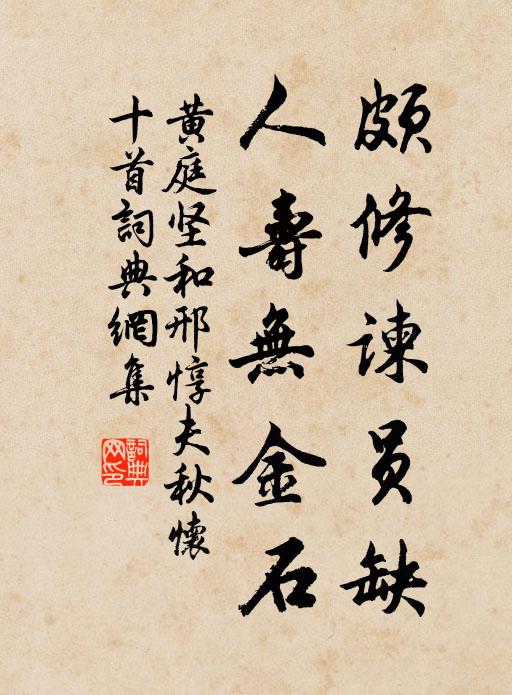 頗修諫员缺
人壽無金石
黄庭坚和邢惇夫秋懷
十首詞典網集
詞典
网印